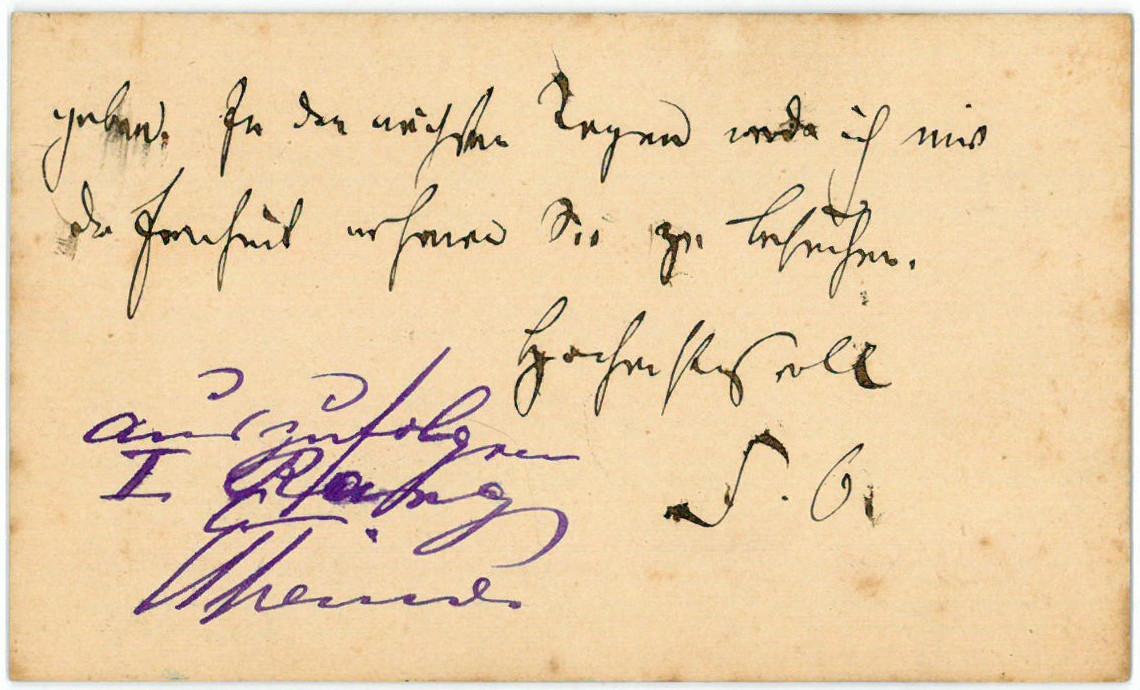 geben. In den nächsten Tagen werde ich mir
die Freiheit nehmen Sie zu besuchen.
Hochachtungsvoll
S. O.
auszufolgen
I. Rang